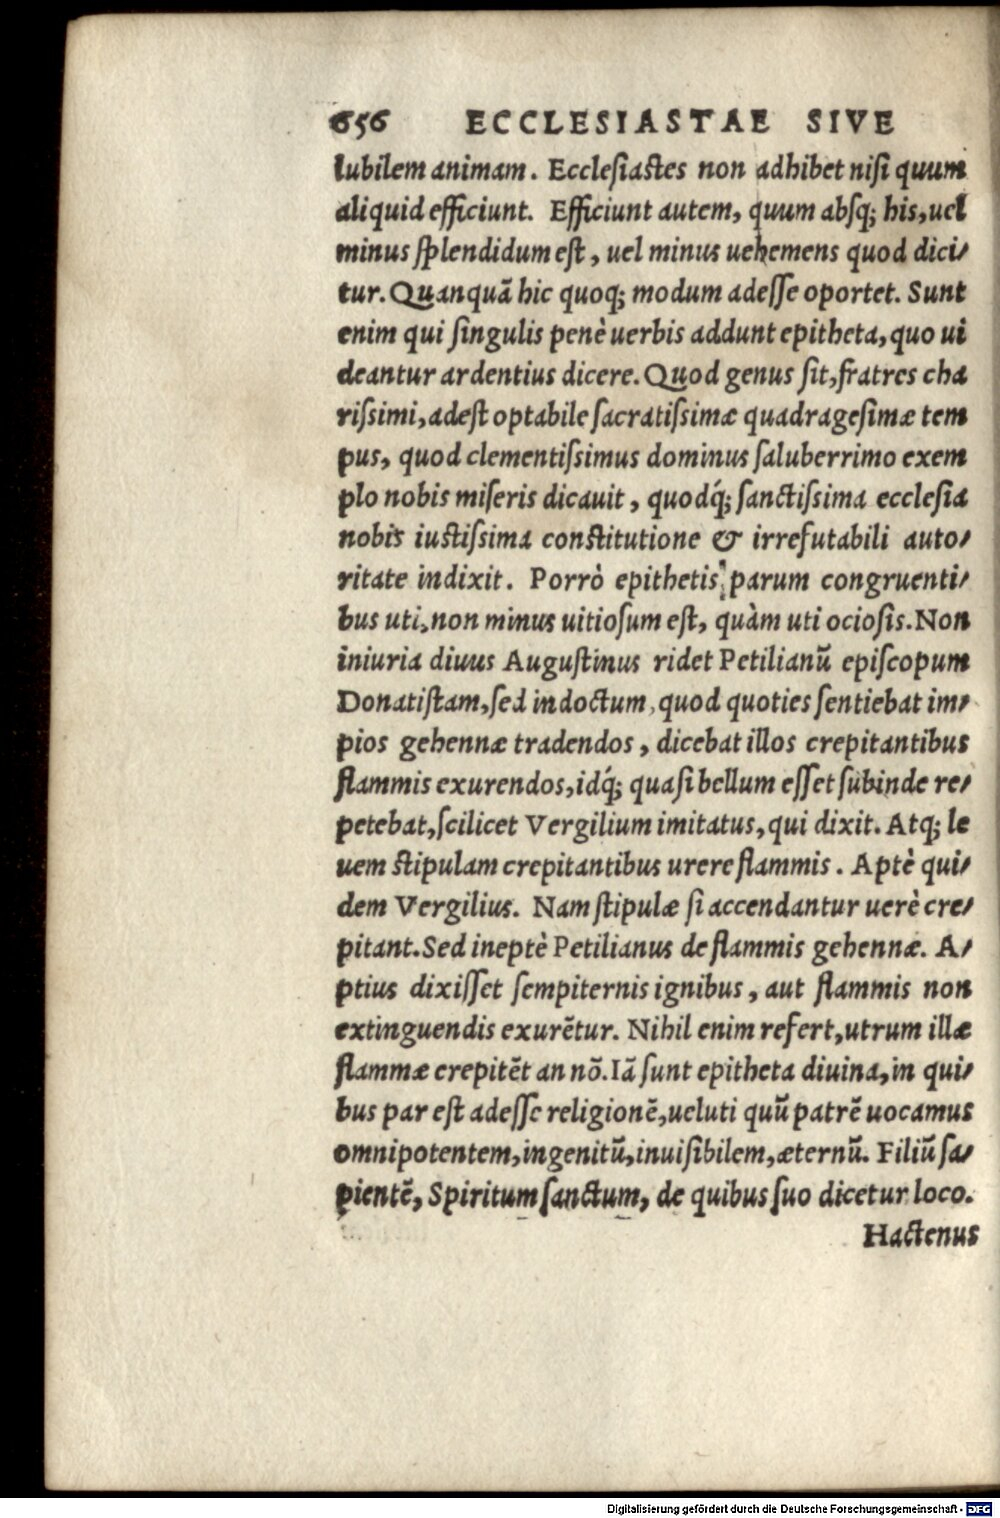 656 ECCLESIASTAE SIVE
lubilem animam. Ecclesiastes non adhibet nisi quum
aliquid efficiunt. Efficiunt autem, quum absq; his, uel
minus splendidum est, uel minus uehemens quod dici/
tur. Quanquã hic quoq; modum adesse oportet. Sunt
enim qui singulis penè uerbis addunt epitheta, quo ui
deantur ardentius dicere. Quod genus sit, fratres cha
rissimi, adest optabile sacratissimæ quadragesimæ tem
pus, quod clementissimus dominus saluberrimo exem
plo nobis miseris dicauit, quodq́; sanctissima ecclesia
nobis iustissima constitutione & irrefutabili auto/
ritate indixit. Porrò epithetis parum congruenti/
bus uti, non minus uitiosum est, quàm uti ociosis. Non
iniuria diuus Augustinus ridet Petilianũ episcopum
Donatistam, sed indoctum, quod quoties sentiebat im/
pios gehennæ tradendos, dicebat illos crepitantibus
flammis exurendos, idq́; quasi bellum esset subinde re/
petebat, scilicet Vergilium imitatus, qui dixit. Atq; le
uem stipulam crepitantibus urere flammis. Aptè qui/
dem Vergilius. Nam stipulæ si accendantur uerè cre/
pitant. Sed ineptè Petilianus de flammis gehennæ. A/
ptius dixisset sempiternis ignibus, aut flammis non
extinguendis exurẽtur. Nihil enim refert, utrum illæ
flammæ crepitẽt an nõ. Iã sunt epitheta diuina, in qui/
bus par est adesse religionẽ, ueluti quũ patrẽ uocamus
omnipotentem, ingenitũ, inuisibilem, æternũ. Filiũ sa/
pientẽ, Spiritum sanctum, de quibus suo dicetur loco.
Hactenus
Digitalisierung gefördert durch die Deutsche Forschungsgemeinschaft - DFG